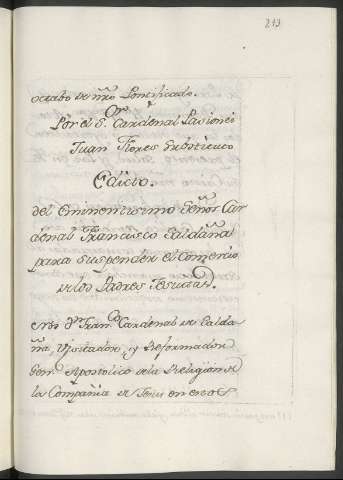 213
octabo de nrō Pontificado.
Por el Sor. Cardenal Pasionei
Juan Flores substituto
Edicto.
del Eminentisimo Señor Car
denal Francisco Saldaña
para suspender el Comercio
de los Padres Jesuitas.
Nos Dn. Franco. Cardenal de Salda
ña, Visitador, y Reformador
Genl. Apostolico de la Religion de
la Compañia de Jesus en estos